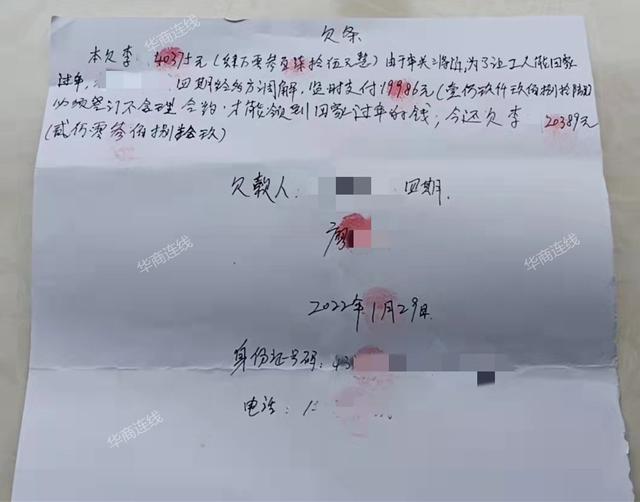 欠条
本欠李 40375元(肆万零参百柒拾伍元整)由于年关将近,为了让工人能回家
过年, 四期经给方调解,临时支付19986元(壹仟玖仟玖佰捌拾陆)
必须签订不合理合约,才能领到回家过年的钱;今还欠李 20389元
(贰仟零参佰捌拾玖)
欠款人: 四期.
廖
2022年1月29日.
身份证号码:43
电话:1
华商连线
华商连线
华商连线
华商连线